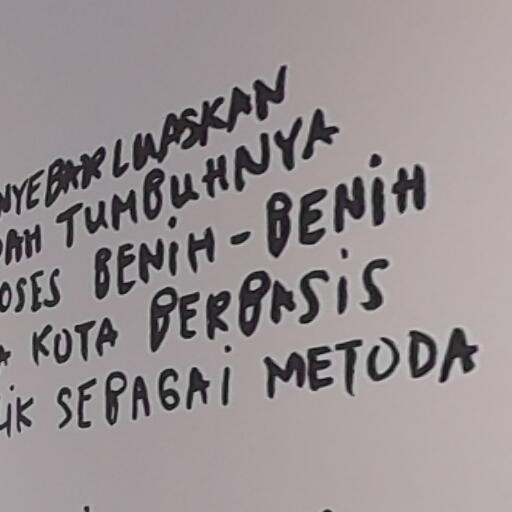 NYEBARLUASKAN
DAH TUMBUHNYA
OSES BENIH-BENIH
A KOTA BERBASIS
LIK SEBAGAI METODA